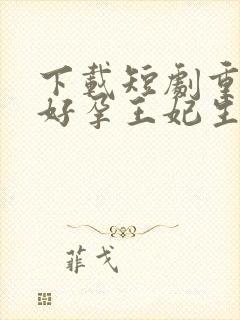 下載短劇重
好孕王妃生
菲戈